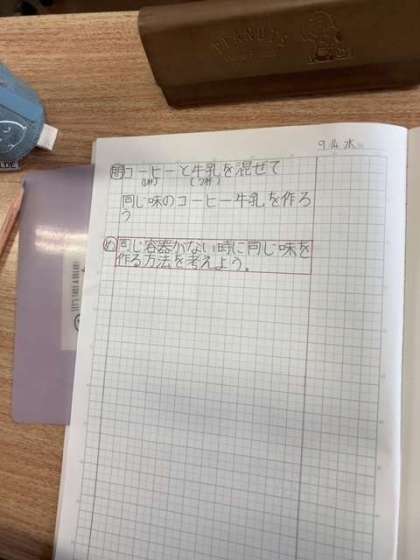 PEANUTS
9/4 水
問 コーヒーと牛乳を混ぜて
(3杯) (2杯)
同じ味のコーヒー牛乳を作ろ
う
め 同じ容器がない時に同じ味を
作る方法を考えよう。